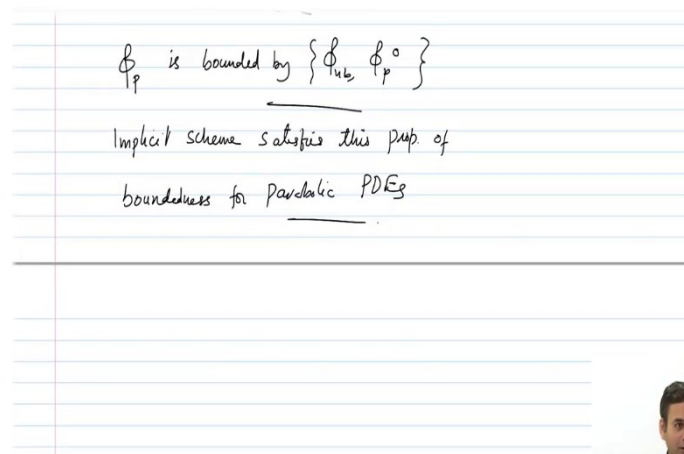 ϕ_p is bounded by {ϕ_nb, ϕ_p^o}
Implicit scheme satisfies this prop. of
boundedness for parabolic PDEs